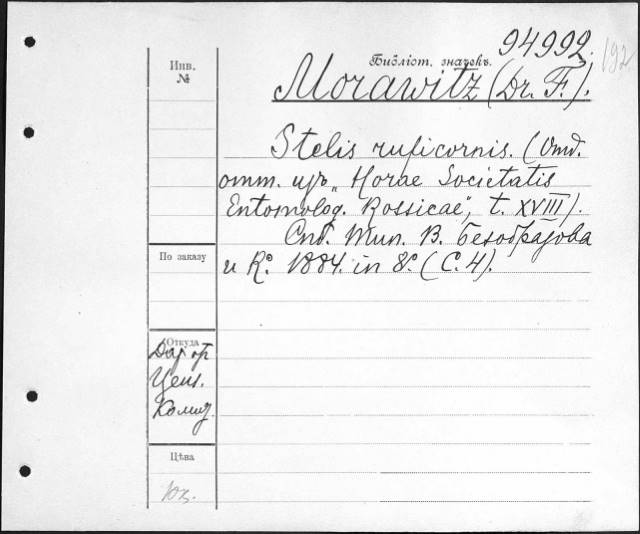 94992.
192
Инв. №
Библіот. значекъ.
Morawitz (Dr. F.).
Stelis ruficornis. (Отд.
отт. изъ „Horae Societatis
Entomolog. Rossicae", t. XVIII).
Спб. Тип. В. Безобразова
и Кº. 1884. in 8º. (С. 4).
По заказу
Откуда
Дар от
Ценз.
Комит.
Цѣна